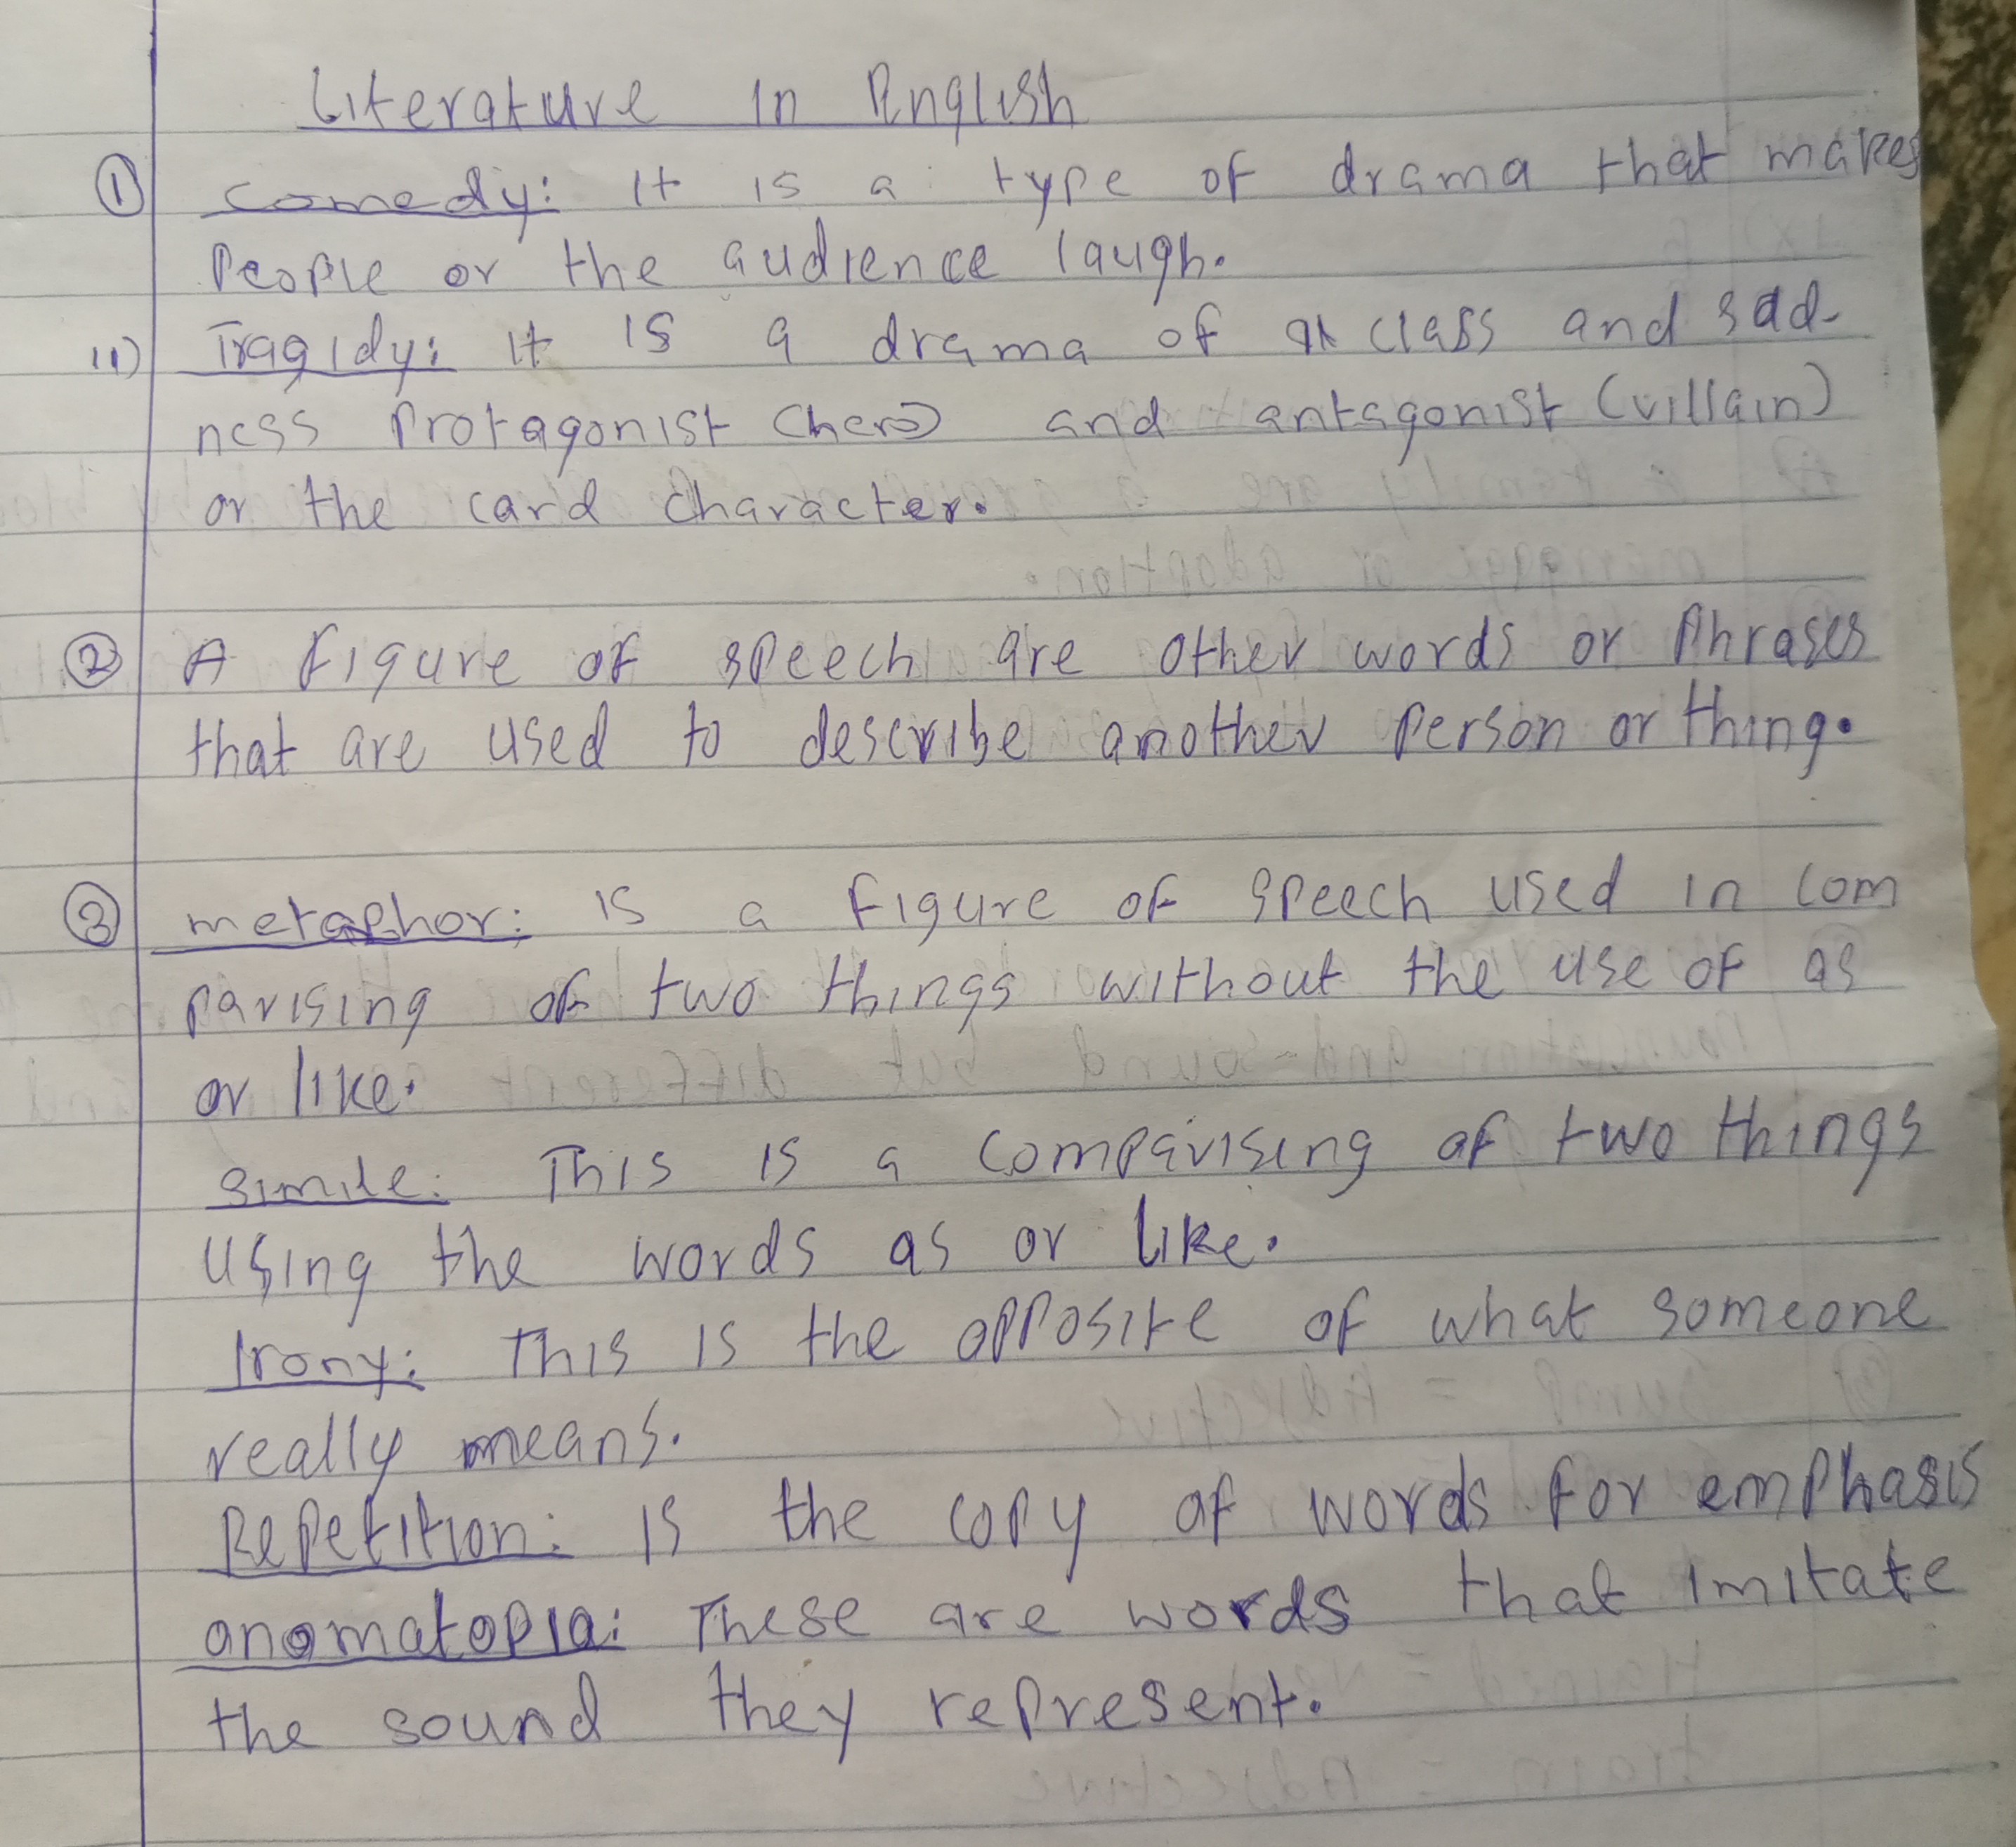 Literature in English
① comedy: It is a type of drama that makes
People or the audience laugh.
ii) Tragidy: It is a drama of class and sad-
ness Protagonist (hero) and antagonist (villain)
or the card character.
② A figure of speech are other words or Phrases
that are used to describe another Person or thing.
③ metaphor: is a figure of speech used in com
parising of two things without the use of as
or like.
simile: This is a comparising of two things
using the words as or like.
Irony: This is the opposite of what someone
really means.
Repetition: is the copy of words for emphasis
anomatopia: These are words that imitate
the sound they represent.